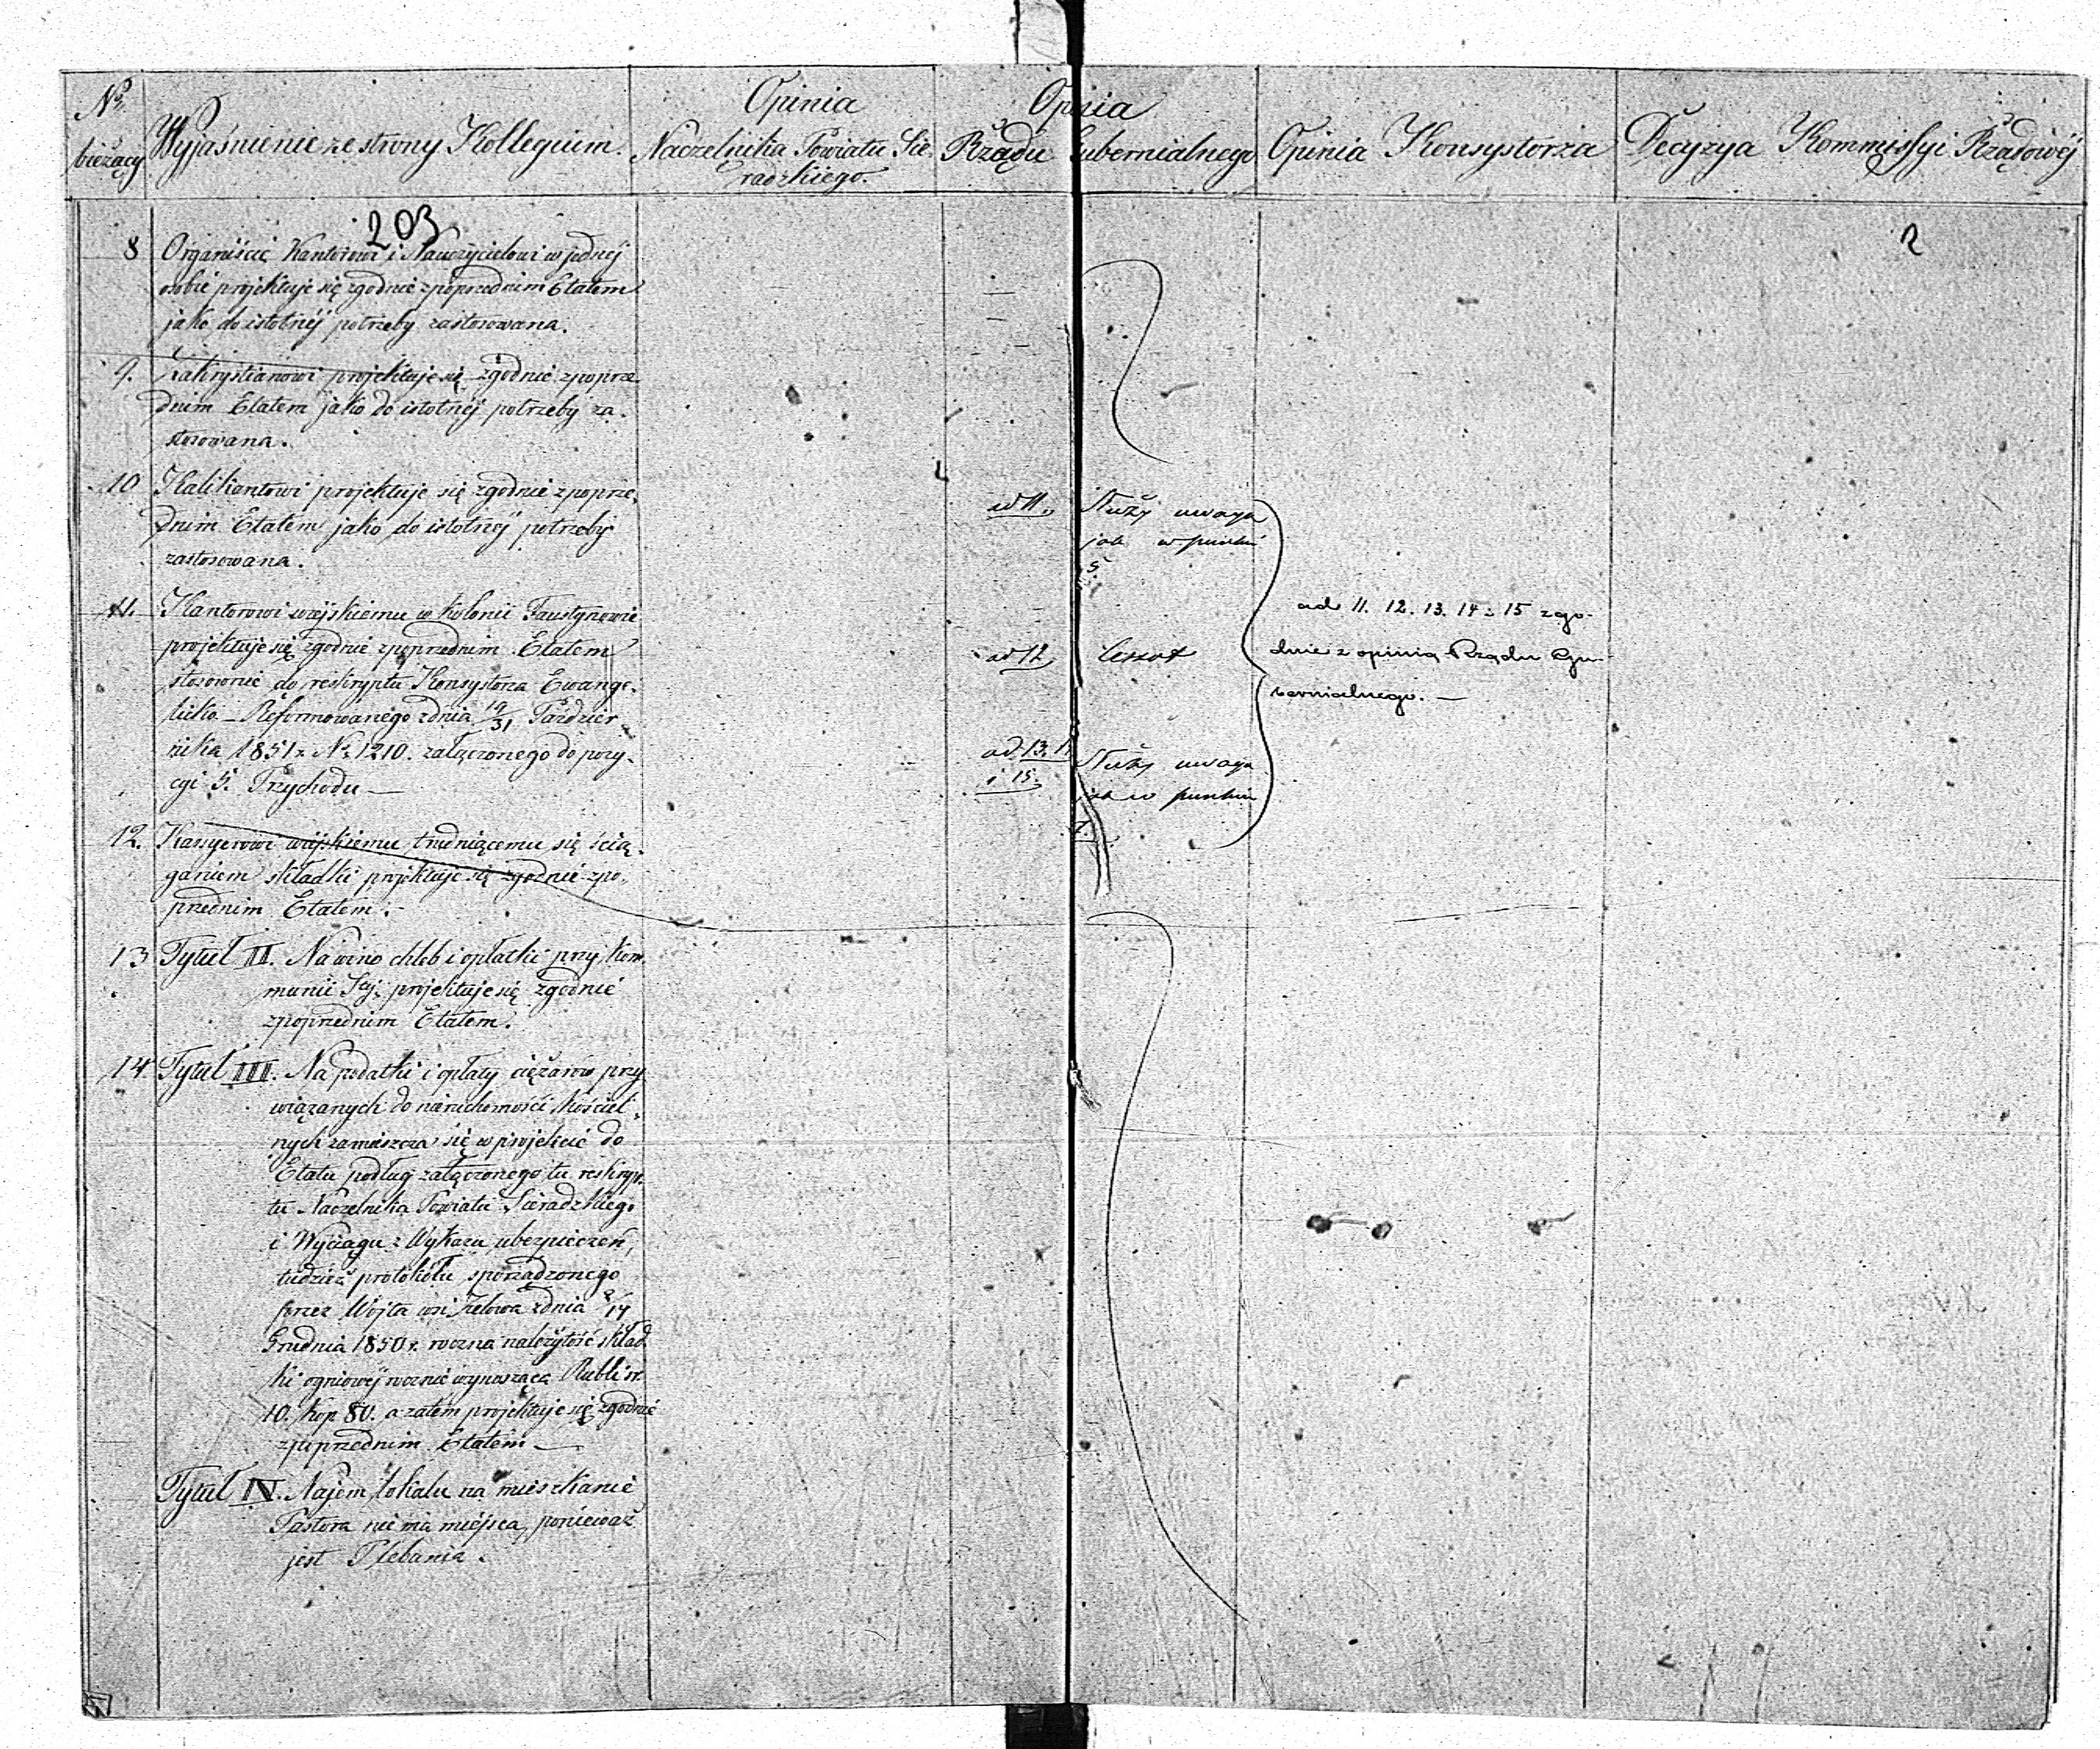 Nr
bieżący
Wyjaśnienie ze strony Kollegium.
Opinia
Naczelnika Powiatu Sie-
radzkiego.
Opinia
Rządu Gubernialnego
Opinia Konsystorza
Decyzya Kommissyi Rządowéj
203
2
8 Organiście Kantorowi i Nauczycielowi w jednej
osobie projektuje się zgodnie z poprzednim Etatem
jako do istotnéj potrzeby zastosowana.
9. Zakrystianowi projektuje się zgodnie z poprze-
dnim Etatem jako do istotnéj potrzeby za-
stosowana.
10 Kalikantowi projektuje się zgodnie z poprze-
dnim Etatem jako do istotnéj potrzeby
zastosowana.
11. Kantorowi wiejskiemu w kolonii Faustynowie
projektuje się zgodnie z poprzednim Etatem
stosownie do reskryptu Konsystorza Ewange-
licko-Reformowanego z dnia 19/31 Paździer-
nika 1851 r. Nr 1210. załączonego do pozy-
cyi 5. Przychodu —
12. Kassyerowi wiejskiemu trudniącemu się ścią-
ganiem składki projektuje się zgodnie z po-
przednim Etatem.
13 Tytuł II. Na wino chleb i opłatki przy Kom-
munii Stej projektuje się zgodnie
z poprzednim Etatem.
14. Tytuł III. Na podatki i opłaty ciężarów przy
wiązanych do nieruchomości kościel-
nych zamieszcza się w projekcie do
Etatu podług załączonego tu reskryp-
tu Naczelnika Powiatu Sieradzkiego
i Wyciągu z Wykazu ubezpieczeń,
tudzież protokółu sporządzonego
przez Wójta wsi Zelowa z dnia 2/14
Grudnia 1850 r. roczna należytość skład-
ki ogniowéj rocznie wynosząca Rubli sr.
10. kop 80. a zatem projektuje się zgodnie
z poprzednim Etatem —
Tytuł IV. Najem lokalu na mieszkanie
Pastora nie ma miejsca, ponieważ
jest Plebania.
ad 11. Służy uwaga
jak w punkcie
5.
ad 12
ad. 13. 14
i 15. Służy uwaga
jak w punkcie
7.
ad 11. 12. 13. 14 i 15 zgo-
dnie z opinią Rządu Gu-
bernialnego. —